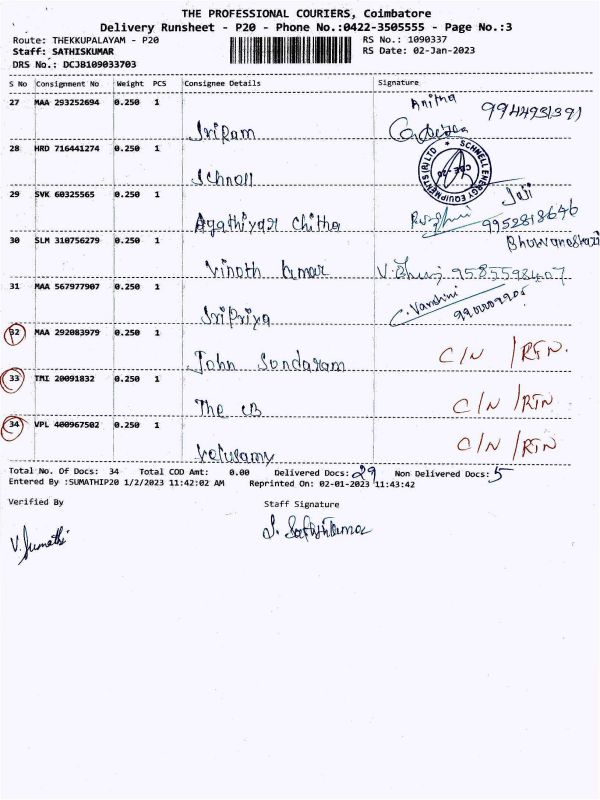 THE PROFESSIONAL COURIERS, Coimbatore
Delivery Runsheet - P20 - Phone No.:0422-3505555 - Page No.:3
Route: THEKKUPALAYAM - P20 RS No.: 1090337
Staff: SATHISKUMAR RS Date: 02-Jan-2023
DRS No.: DCJB109033703
S No Consignment No Weight PCS Consignee Details Signature
27 MAA 293252694 0.250 1 SriRam Anitha 9944931391
28 HRD 716441274 0.250 1 Schnell SCHNELL ENERGY EQUIPMENTS (P) LTD CBE - 20
29 SVK 60325565 0.250 1 Agathiyar Chitha Jeji 9952818646
30 SLM 310756279 0.250 1 Vinoth Kumar 9585598407
31 MAA 567977907 0.250 1 SriPriya C. Vanshini
32 MAA 292083979 0.250 1 John Sondaram C/N /RTN.
33 TMI 20091832 0.250 1 The CB C/N /RTN
34 VPL 400967502 0.250 1 Velusamy C/N /RTN
Total No. Of Docs: 34 Total COD Amt: 0.00 Delivered Docs: 29 Non Delivered Docs: 5
Entered By :SUMATHIP20 1/2/2023 11:42:02 AM Reprinted On: 02-01-2023 11:43:42
Verified By Staff Signature
V. Sumathi S. Sathishkumar